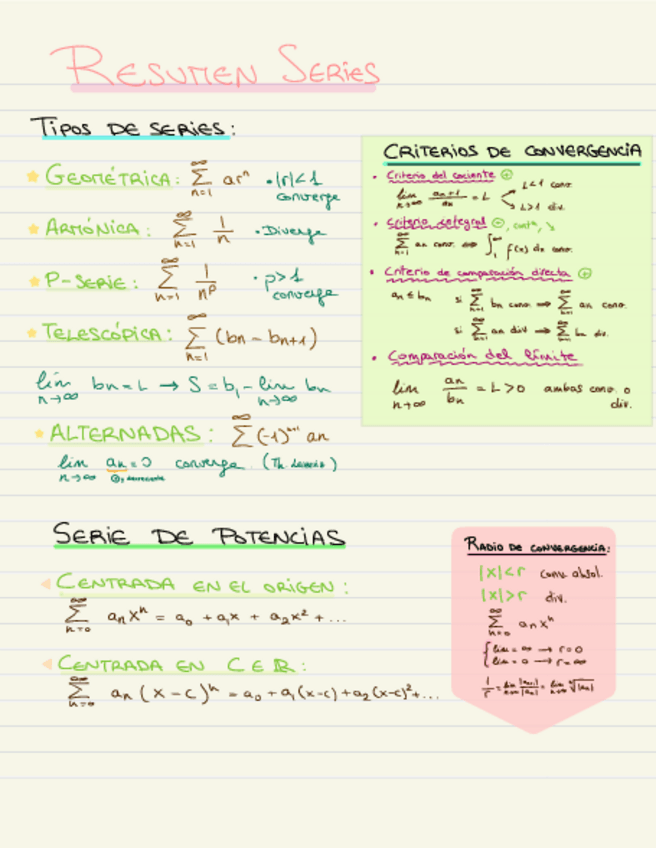 RESUMEN SERIES
TIPOS DE SERIES:
GEOMÉTRICA: ∞ Σ n=1 arⁿ · |r|<1 converge
ARMÓNICA: ∞ Σ n=1 1/n · Diverge
P-SERIE: ∞ Σ n=1 1/nᵖ · p>1 converge
TELESCÓPICA: ∞ Σ n=1 (bn - bn+1)
lim n→∞ bn = L → S = b₁ - lim n→∞ bn
ALTERNADAS: ∞ Σ (-1)ⁿ⁺¹ an
lim n→∞ an = 0 converge (Th. Leibniz)
⊕, decreciente
CRITERIOS DE CONVERGENCIA
· Criterio del cociente ⊕
lim n→∞ an+1/an = L
L<1 conv.
L>1 div.
· Criterio integral ⊕, cont., ↘
∞ Σ n=1 an conv. ⇔ ∫₁^∞ f(x) dx conv.
· Criterio de comparación directa ⊕
an ≤ bn si ∞ Σ n=1 bn conv. → ∞ Σ n=1 an conv.
si ∞ Σ n=1 an div → ∞ Σ n=1 bn div.
· Comparación del límite
lim n→∞ an/bn = L > 0 ambas conv. o
div.
SERIE DE POTENCIAS
CENTRADA EN EL ORIGEN:
∞ Σ n=0 anxⁿ = a₀ + a₁x + a₂x² + ...
CENTRADA EN C ∈ ℝ:
∞ Σ n=0 an (x-c)ⁿ = a₀ + a₁(x-c) + a₂(x-c)² + ...
RADIO DE CONVERGENCIA:
|x|<r conv. absol.
|x|>r div.
∞ Σ n=0 anxⁿ
lim = ∞ → r=0
lim = 0 → r=∞
1/r = lim n→∞ |an+1|/|an| = lim n→∞ ⁿ√|an|